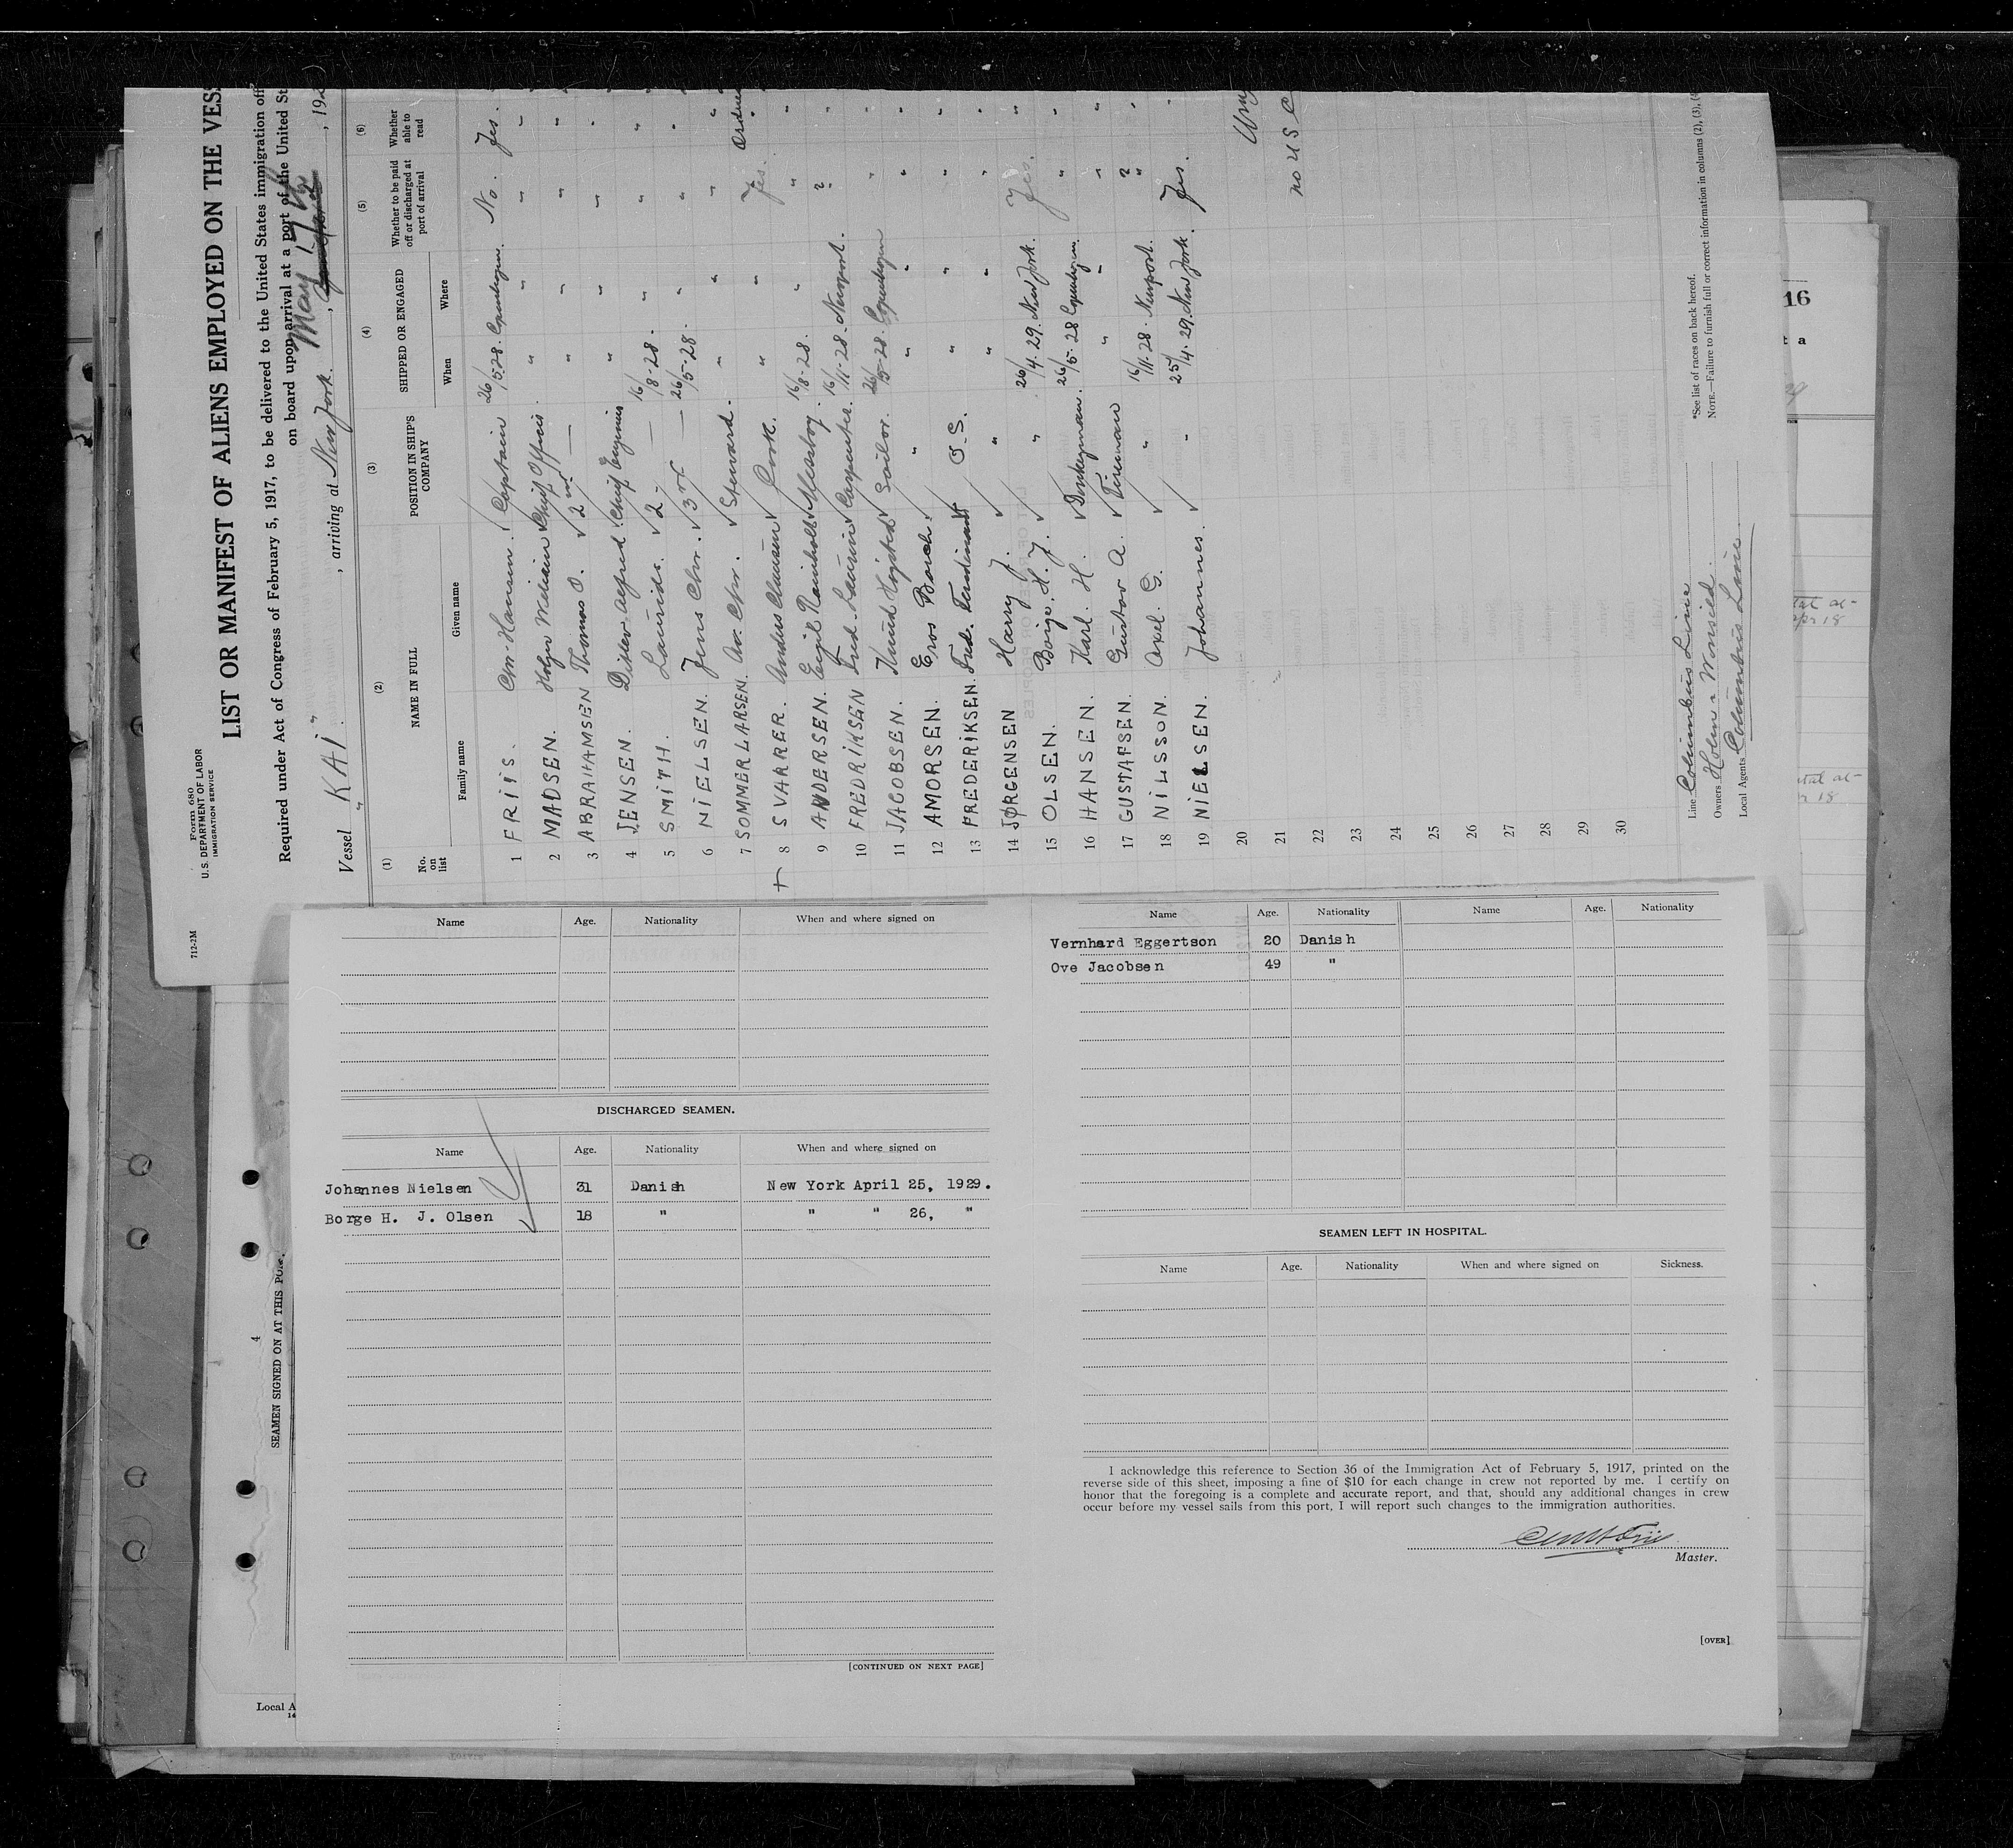 Form 680
U. S. DEPARTMENT OF LABOR
IMMIGRATION SERVICE
LIST OR MANIFEST OF ALIENS EMPLOYED ON THE VESS
Required under Act of Congress of February 5, 1917, to be delivered to the United States immigration off
on board upon arrival at a port of the United St
Vessel "KAI". , arriving at New York. , May 17th , 192
(1) (2) (3) (4) (5) (6)
No. on list NAME IN FULL POSITION IN SHIP'S COMPANY SHIPPED OR ENGAGED Whether to be paid off or discharged at port of arrival Whether able to read
Family name Given name When Where
1 FRIIS. Chr. Hansen. Captain 26/5-28. Copenhagen. No. Yes.
2 MADSEN. Holger William Chief Officer. " " " "
3 ABRAHAMSEN Thomas O. 2nd — " " " "
4 JENSEN. Detlev Alfred. Chief Engineer " " " "
5 SMITH. Laurids. 2- — 16/8-28. " " "
6 NIELSEN. Jens Chr. 3rd — 26/5-28. " " "
7 SOMMERLARSEN. Av. Chr. Steward. " " " "
8 SVARRER. Anders Clausen Cook. " " Yes.
9 ANDERSEN. Ejgil Rainholdt Messboy. 16/8-28. " " "
10 FREDRIKSEN Fred. Laurin Carpenter. 16/11-28. Newport. ? "
11 JACOBSEN. Knud Hojsted Sailor. 26/5-28. Copenhagen " "
12 AMORSEN. Eros Borch. " " " " "
13 FREDERIKSEN. Fred. Ferdinand O.S. " " " "
14 JØRGENSEN Harry J. " " " " "
15 OLSEN. Börge. H. J. " 26/4. 29. New York. Yes. "
16 HANSEN. Karl. H. Donkeyman. 26/5-28 Copenhagen. " "
17 GUSTAFSEN. Gustav A. Fireman " " " "
18 NILSSON. Axel G. " 16/11-28. Newport. ? "
19 NIELSEN. Johannes. " 25/4. 29. New York. Yes. "
20
21
22
23
24
25
26
27
28
29
30
no U S C
Line Columbus Line
Owners Holm & Wonsild.
Local Agents Columbus Line.
*See list of races on back hereof.
NOTE.—Failure to furnish full or correct information in columns (2), (3), (4
712-2M
Name Age. Nationality When and where signed on
DISCHARGED SEAMEN.
Name Age. Nationality When and where signed on
Johannes Nielsen 31 Danish New York April 25, 1929.
Borge H. J. Olsen 18 " " " 26, "
[CONTINUED ON NEXT PAGE]
Name Age. Nationality Name Age. Nationality
Vernhard Eggertson 20 Danish
Ove Jacobsen 49 "
SEAMEN LEFT IN HOSPITAL.
Name Age. Nationality When and where signed on Sickness.
I acknowledge this reference to Section 36 of the Immigration Act of February 5, 1917, printed on the
reverse side of this sheet, imposing a fine of $10 for each change in crew not reported by me. I certify on
honor that the foregoing is a complete and accurate report, and that, should any additional changes in crew
occur before my vessel sails from this port, I will report such changes to the immigration authorities.
Master.
[OVER]
4
SEAMEN SIGNED ON AT THIS PORT.
Local A
16